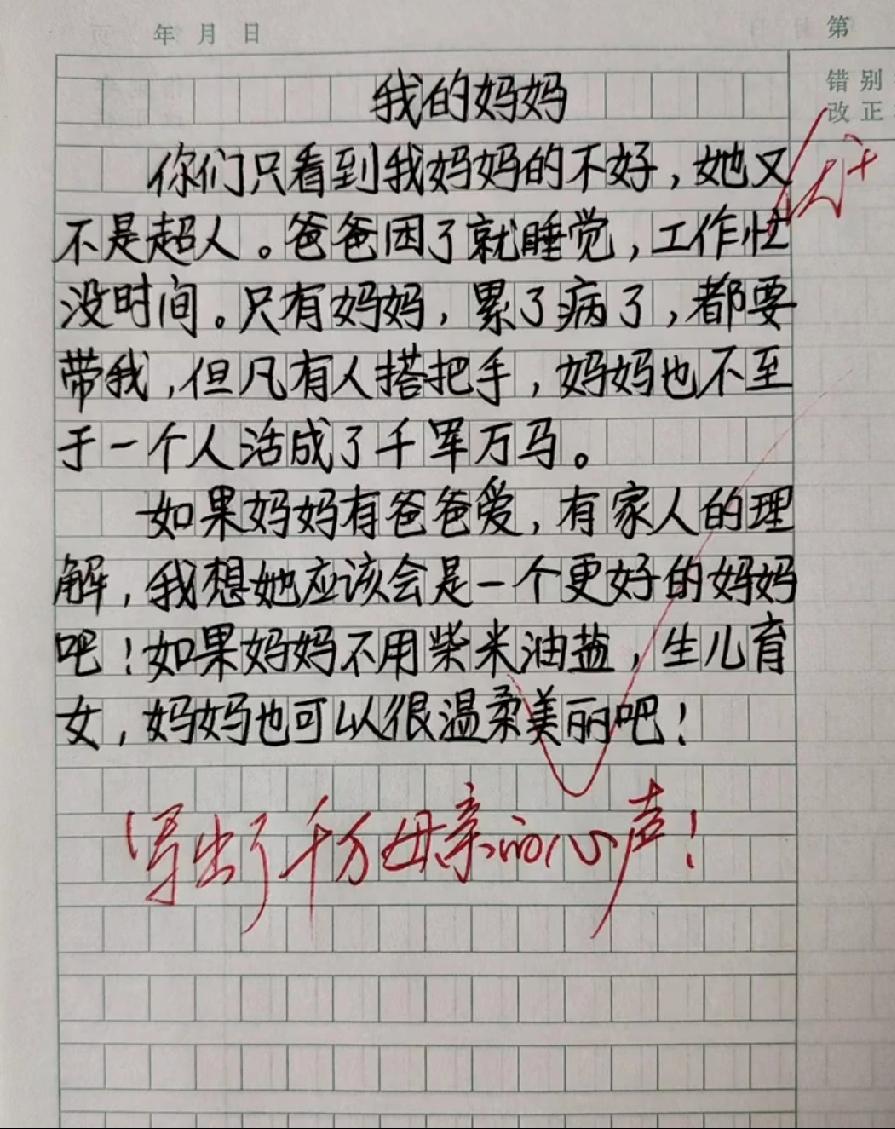 年 月 日 第
错 别
改 正
我的妈妈
优+
你们只看到我妈妈的不好，她又
不是超人。爸爸困了就睡觉，工作忙
没时间。只有妈妈，累了病了，都要
带我，但凡有人搭把手，妈妈也不至
于一个人活成了千军万马。
如果妈妈有爸爸爱，有家人的理
解，我想她应该会是一个更好的妈妈
吧！如果妈妈不用柴米油盐，生儿育
女，妈妈也可以很温柔美丽吧！
写出了千万母亲的心声！